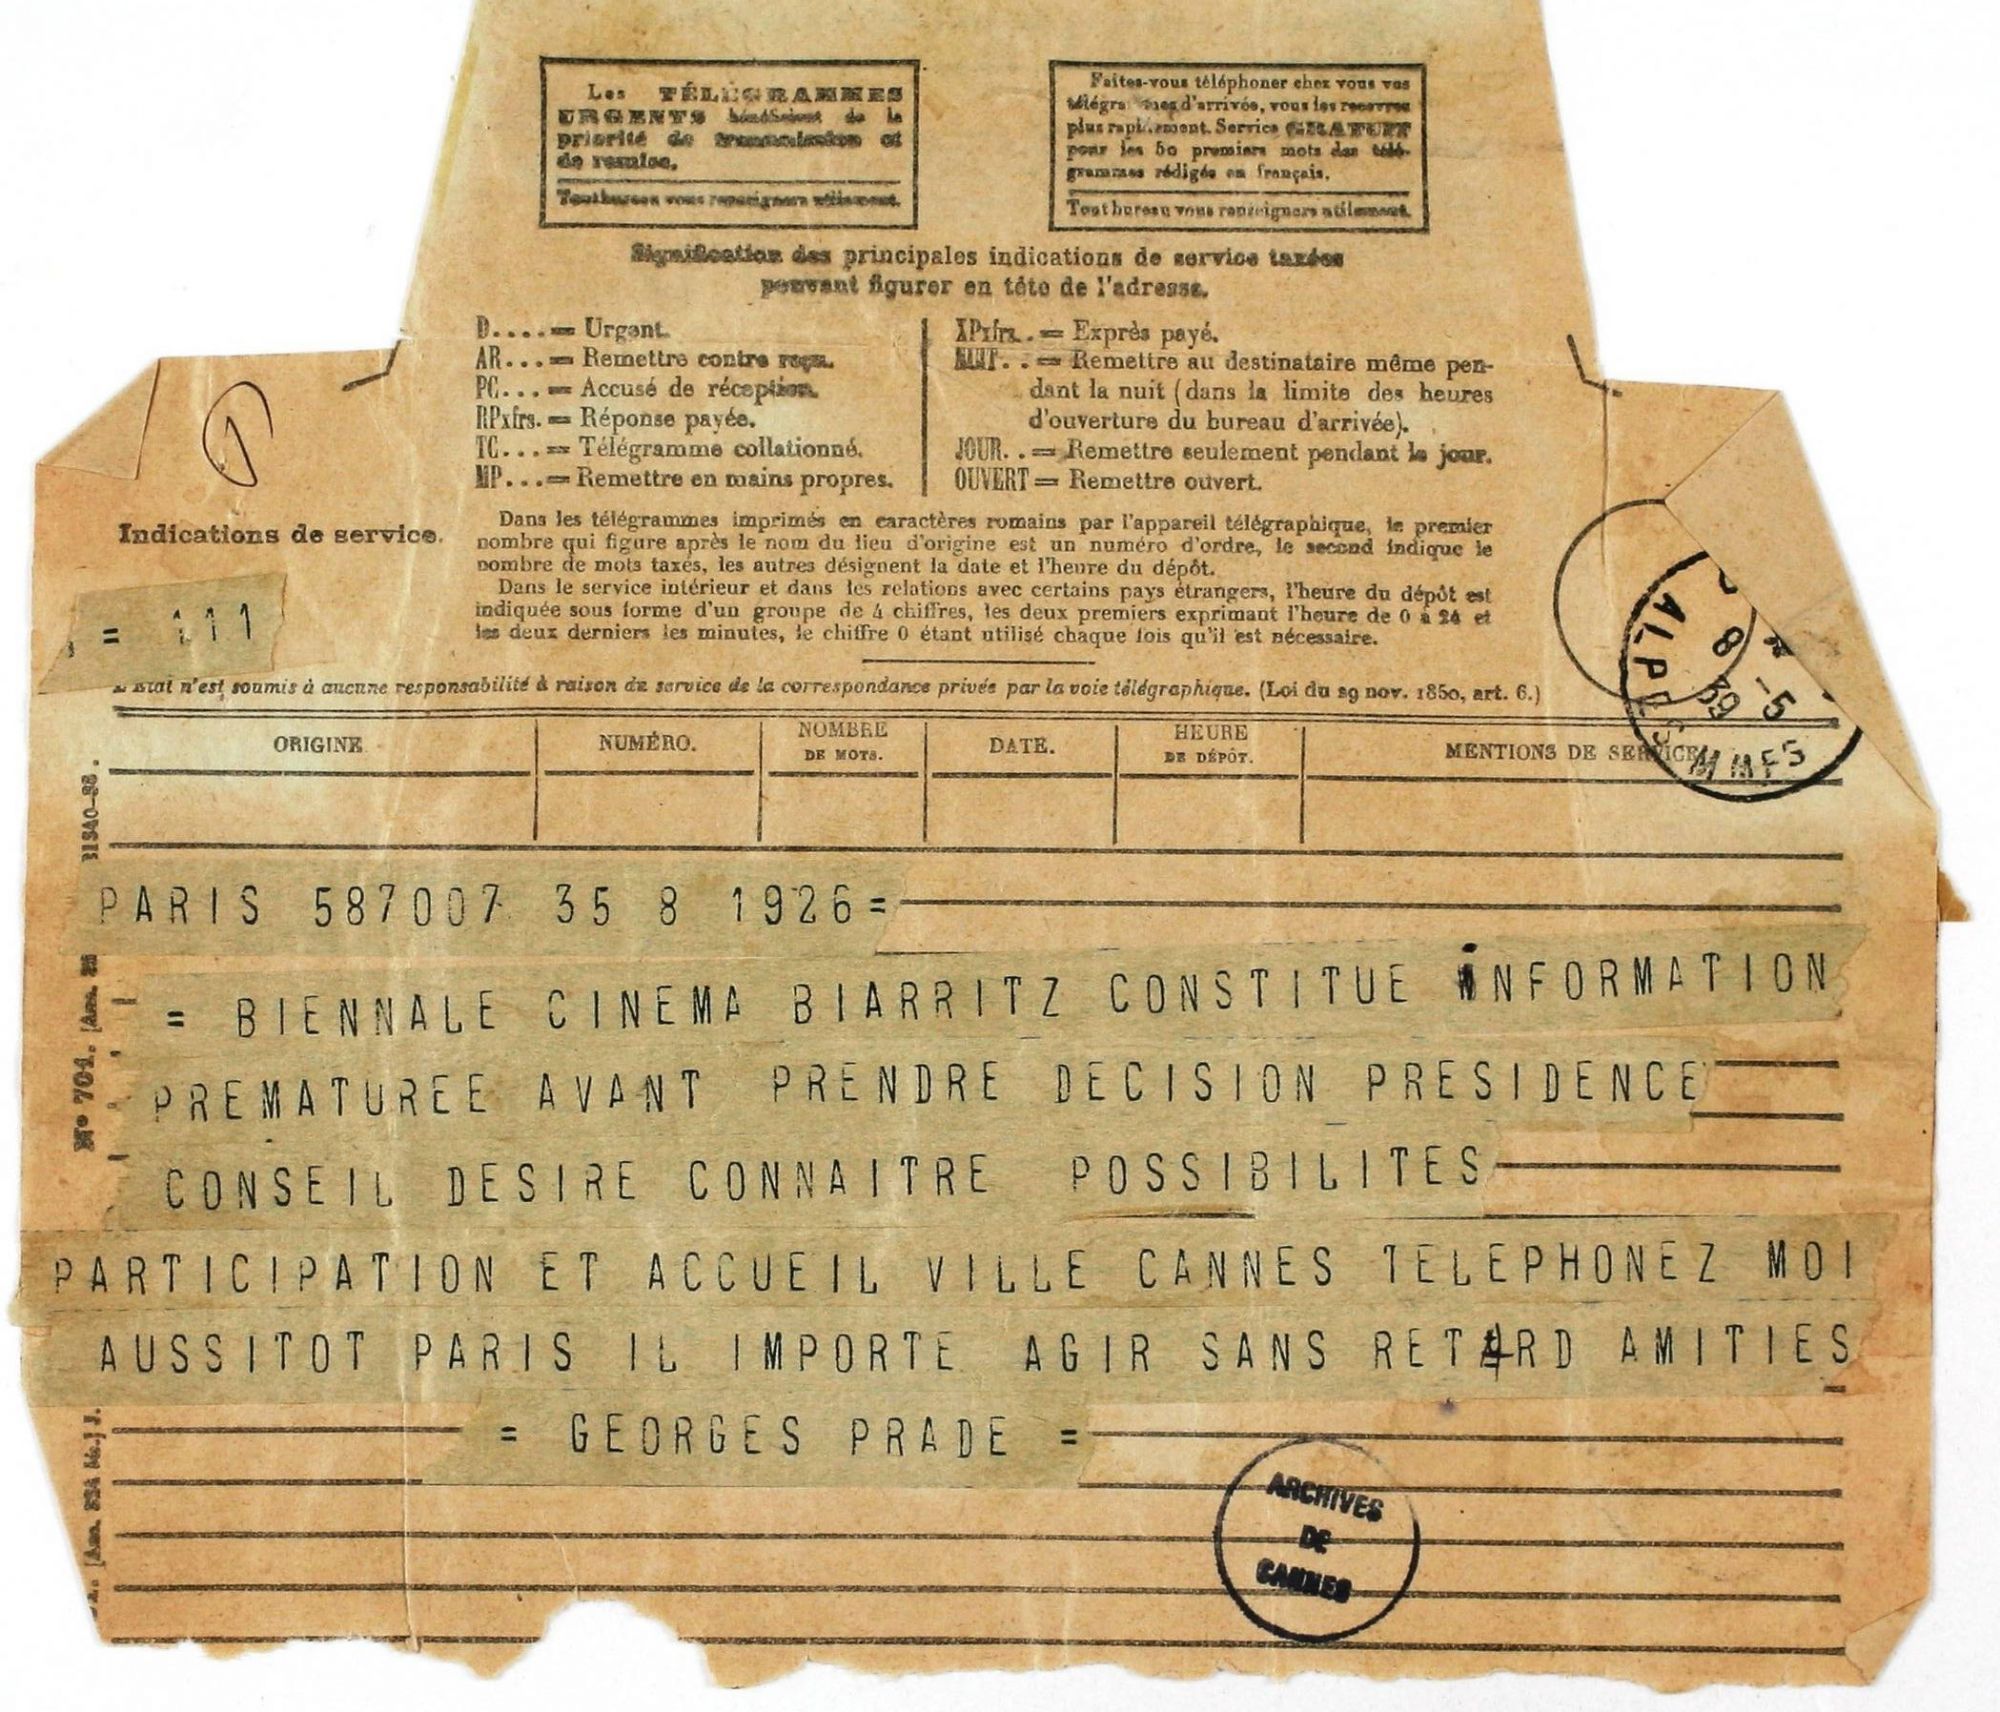 Les TÉLÉGRAMMES
URGENTS bénéficient de la
priorité de transmission et
de remise.
Tout bureau vous renseignera utilement.
Faites-vous téléphoner chez vous vos
télégrammes d'arrivée, vous les recevrez
plus rapidement. Service GRATUIT
pour les 50 premiers mots des télé-
grammes rédigés en français.
Tout bureau vous renseignera utilement.
Signification des principales indications de service taxées
pouvant figurer en tête de l'adresse.
D....= Urgent.
AR...= Remettre contre reçu.
PC...= Accusé de réception.
RPxfrs.= Réponse payée.
TC...= Télégramme collationné.
MP...= Remettre en mains propres.
XPxfrs..= Exprès payé.
NUIT..= Remettre au destinataire même pen-
dant la nuit (dans la limite des heures
d'ouverture du bureau d'arrivée).
JOUR..= Remettre seulement pendant le jour.
OUVERT = Remettre ouvert.
1
Indications de service.
= 111
Dans les télégrammes imprimés en caractères romains par l'appareil télégraphique, le premier
nombre qui figure après le nom du lieu d'origine est un numéro d'ordre, le second indique le
nombre de mots taxés, les autres désignent la date et l'heure du dépôt.
Dans le service intérieur et dans les relations avec certains pays étrangers, l'heure du dépôt est
indiquée sous forme d'un groupe de 4 chiffres, les deux premiers exprimant l'heure de 0 à 24 et
les deux derniers les minutes, le chiffre 0 étant utilisé chaque fois qu'il est nécessaire.
L'État n'est soumis à aucune responsabilité à raison du service de la correspondance privée par la voie télégraphique. (Loi du 29 nov. 1850, art. 6.)
8 -5 39
ORIGINE NUMÉRO. NOMBRE DE MOTS. DATE. HEURE DE DÉPÔT. MENTIONS DE SERVICE
PARIS 587007 35 8 1926=
= BIENNALE CINEMA BIARRITZ CONSTITUE INFORMATION
PREMATUREE AVANT PRENDRE DECISION PRESIDENCE
CONSEIL DESIRE CONNAITRE POSSIBILITES
PARTICIPATION ET ACCUEIL VILLE CANNES TELEPHONEZ MOI
AUSSITOT PARIS IL IMPORTE AGIR SANS RETARD AMITIES
= GEORGES PRADE =
ARCHIVES
DE
CANNES
Nº 701.